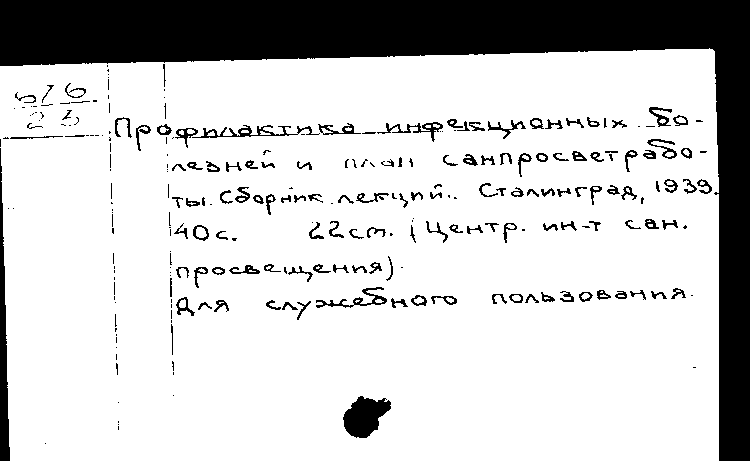 Профилактика инфекционных бо-
лезней и план санпросветрабо-
ты. Сборник лекций. Сталинград, 1939.
40 с. 22 cm. (Центр. ин-т сан.
просвещения).
Для служебного пользования.